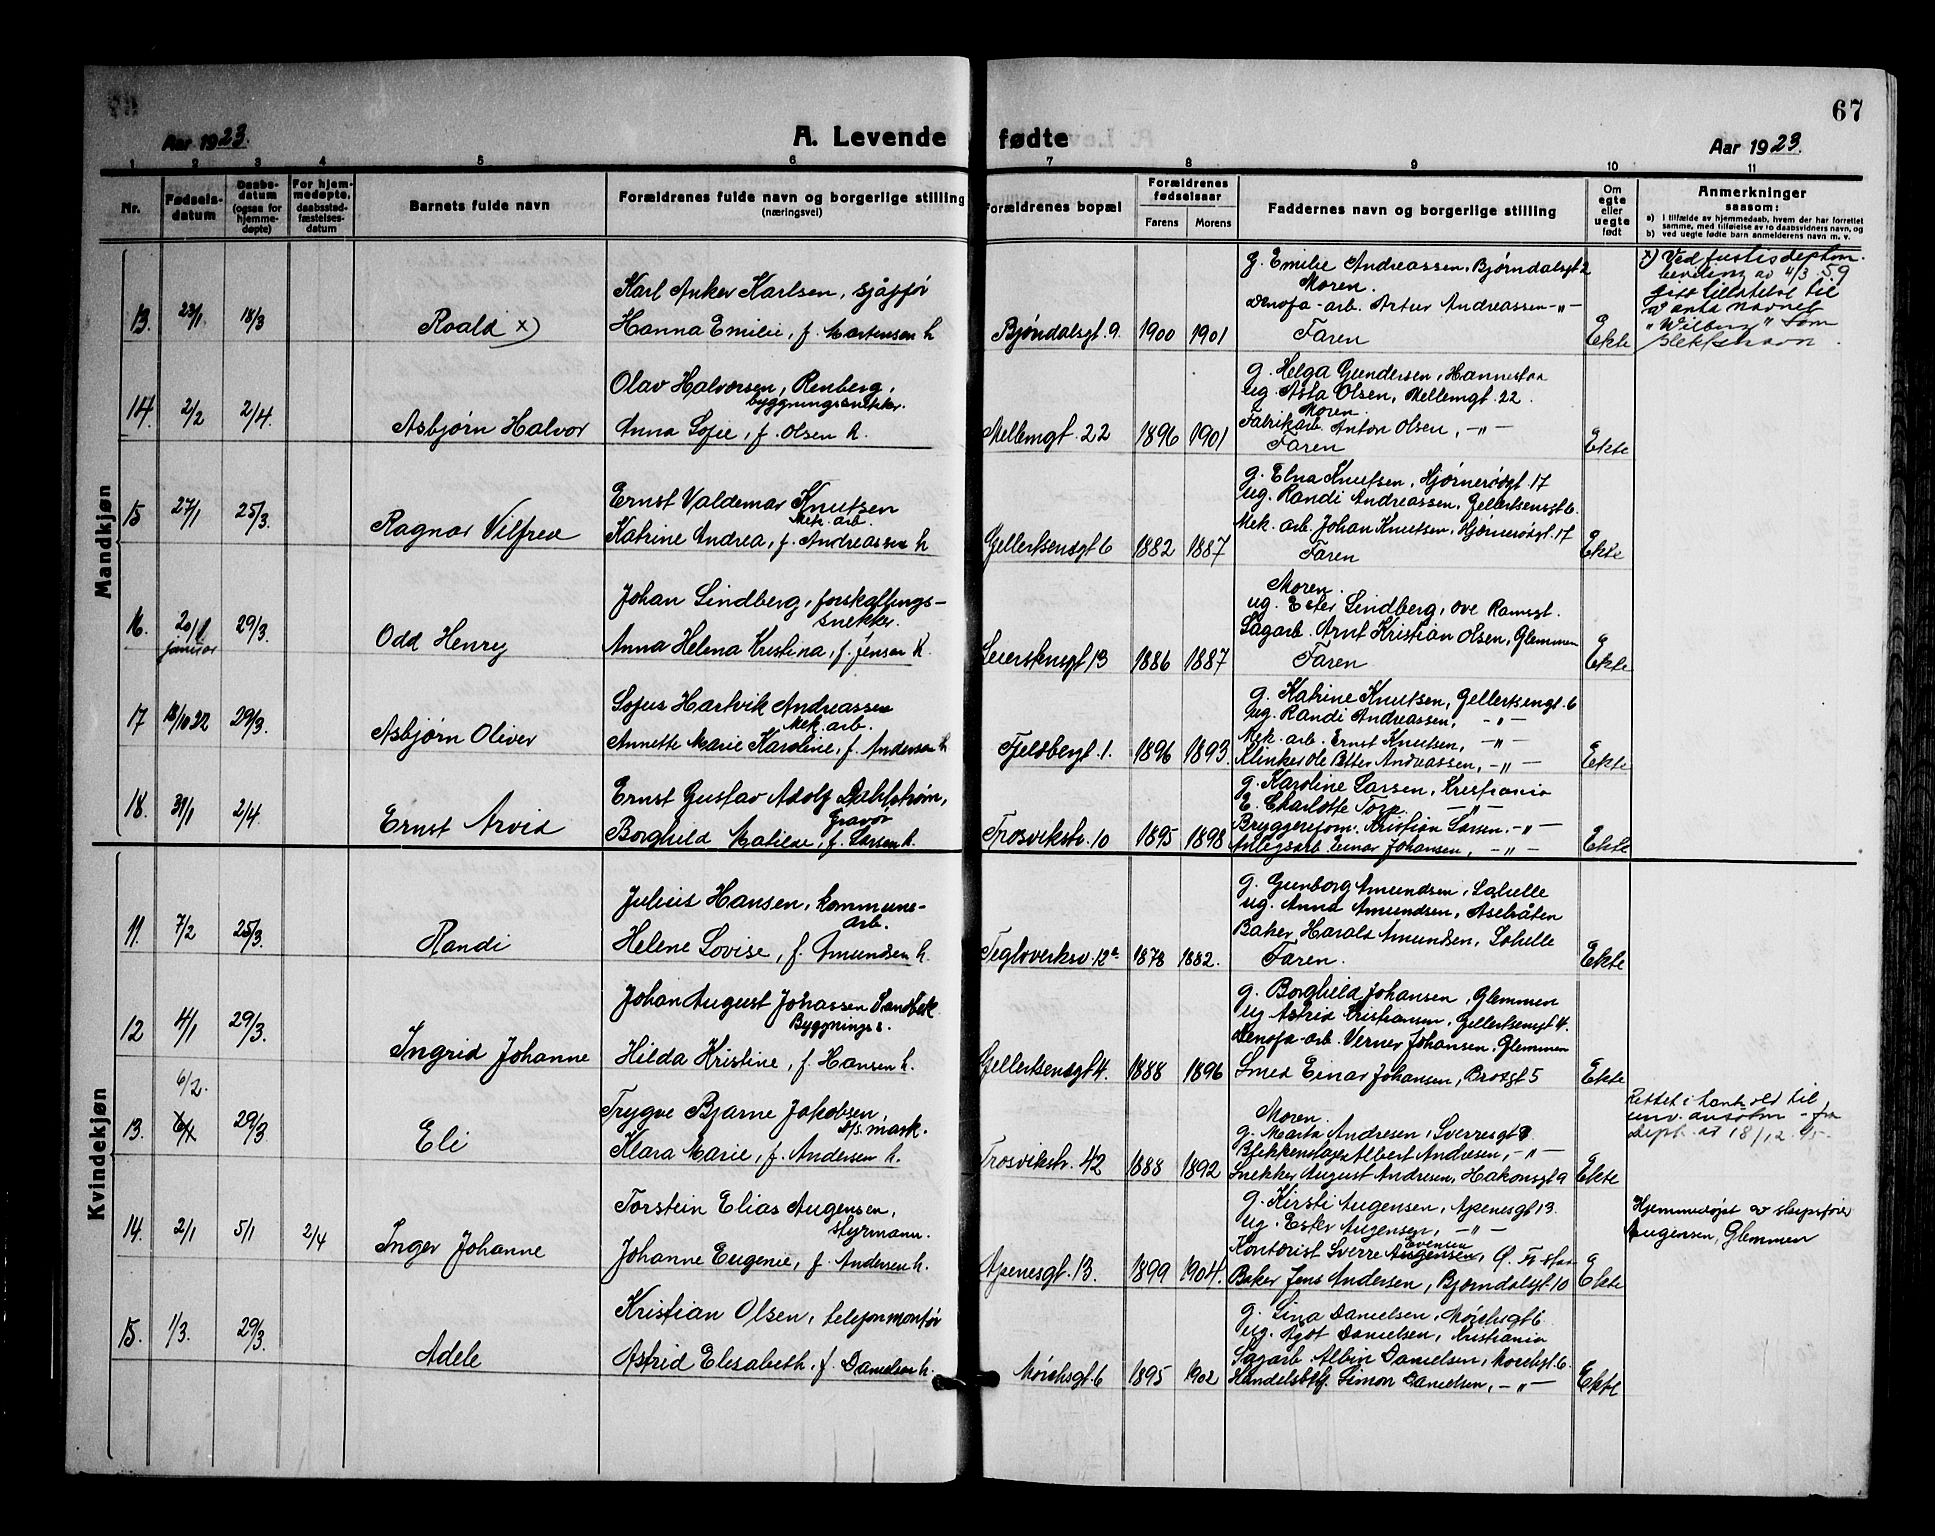 67
Aar 1923.
A. Levende fødte
Aar 1923.
1 2 3 4 5 6 7 8 9 10 11
Nr.
Fødsels-
datum
Daabs-
datum
(ogsaa for
hjemme-
døpte)
For hjem-
medøpte,
daabsstad-
fæstelses-
datum
Barnets fulde navn
Forældrenes fulde navn og borgerlige stilling
(næringsvei)
Forældrenes bopæl
Forældrenes
fødselsaar
Farens Morens
Faddernes navn og borgerlige stilling
Om
egte
eller
uegte
født
Anmerkninger
saasom:
a) i tilfælde av hjemmedaab, hvem der har forrettet
samme, med tilføielse av to daabsvidners navn, og
b) ved uegte fødte barn anmelderens navn m. v.
Mandkjøn
13. 23/1 18/3
Roald x)
Karl Anker Karlsen, sjåfør
Hanna Emilie, f. Mortensen h.
Bjøndalsgt. 9. 1900 1901
g. Emilie Andreassen, Bjørndalsgt 2
Moren.
Denofa-arb. Artur Andreassen -"-
Faren
Ekte
x) Ved justisdeptm.
bevilling av 4/3 59
gitt tillatelse til
å anta navnet
"Wilberg" som
slektsnavn.
14. 2/2 2/4.
Asbjørn Halvor
Olav Halvorsen, Renberg,
byggningssnekker.
Anna Sofie, f. Olsen h.
Mellemgt. 22 1896 1901
g. Helga Gundersen, Hannestaa
ug. Asta Olsen, Mellemgt. 22.
Moren.
Fabrikarb Anton Olsen, -"-
Faren
Ekte
15 27/1 25/3.
Ragnar Vilfred
Ernst Valdemar Knutsen
Mek. arb.
Katrine Andrea, f. Andreassen h
Gellertsensgt 6 1882 1887
g. Elna Knutsen, Hjørnerødgt. 17
ug. Randi Andreassen, Gellertsensgt 6.
Mek. arb. Johan Knutsen, Hjørnerødgt. 17
Faren
Ekte
16. 20/1 29/3.
januar
Odd Henry
Johan Lindberg, forskallings-
snekker.
Anna Helena Kristina, f. Jensen h.
Leierstensgt 13 1886 1887
Moren.
ug. Ester Lindberg, ove Ramsgt.
Sagarb. Arnt Kristian Olsen, Glemmen
Faren
Ekte
17 18/10 22 29/3.
Asbjørn Oliver
Sofus Hartvik Andreassen
Mek. arb.
Annette Marie Karoline, f. Andersen h
Fjeldbergt. 1. 1896 1893.
g. Katrine Knutsen, Gellertsengt. 6
ug. Randi Andreassen, -"-
Mek. arb. Ernst Knutsen, -"-
Klinker Ole Petter Andreassen, -"-
Ekte
18. 31/1 2/4.
Ernst Arvid
Ernst Gustav Adolf Dahlstrøm,
Gravør
Borghild Matilde, f. Larsen h.
Trosvikstr. 10 1895 1898
g. Karoline Larsen, Kristiania
E. Charlotte Torp. -"-
Bryggereiform. Kristian Larsen. -"-
Anlegsarb. Einar Johansen, -"-
Ekte
Kvindekjøn
11. 7/2 25/3.
Randi
Julius Hansen, kommune-
arb.
Helene Lovise, f. Amundsen h.
Teglverksv. 12a 1878 1882.
g. Gunborg Amundsen, Labelle
ug. Anna Amundsen, Aselråten
Baker Harald Amundsen, Labelle
Faren.
Ekte
12 4/1 29/3.
Ingrid Johanne
Johan August Johassen Sandbek
Byggnings s.
Hilda Kristine, f. Hansen h.
Gellertsensgt 4. 1888 1896
g. Borghild Johansen, Glemmen
ug Astrid Kristiansen, Gellertsensgt 4.
Denofa-arb. Verner Johansen, Glemmen
Smed Einar Johansen, Brodgt 5
Ekte
6/2.
13. 29/3
Eli
Trygve Bjarne Jakobsen,
d/s. mask.
Klara Marie, f. Andersen h.
Trosvikstr. 42 1888 1892
Moren.
g. Marta Andresen, Sverresgt 8
Blikkenslager Albert Andresen, -"-
Snekker August Andresen, Hakonsgt 9
Ekte
Rettet i henhold til
unv. ansökn - fra
dept. at 18/12 45.
14. 2/1 5/1 2/4
Inger Johanne
Torstein Elias Augensen,
styrmann.
Johanne Eugenie, f. Andersen h.
Apenesgt. 13. 1899 1904.
g. Kirsti Augensen, Apenesgt 13.
ug. Ester Augensen, -"-
Evensen
Kontorist Sverre Augensen, Q. Fr. stad
Baker Jens Andersen, Bjørndalsgt. 10
Ekte
Hjemmedøpt av skipsfører
Augensen, Glemmen
15. 1/3. 29/3.
Adele
Kristian Olsen, telefonmontør
Astrid Elisabeth, f. Danielsen h.
Mørchsgt 6 1895 1902
g. Lina Danielsen, Mørchsgt 6
ug. Agot Danielsen, Kristiania
Sagarb. Albin Danielsen, Mørchsgt 6.
Handelsbetj. Simon Danielsen, -"-
Ekte